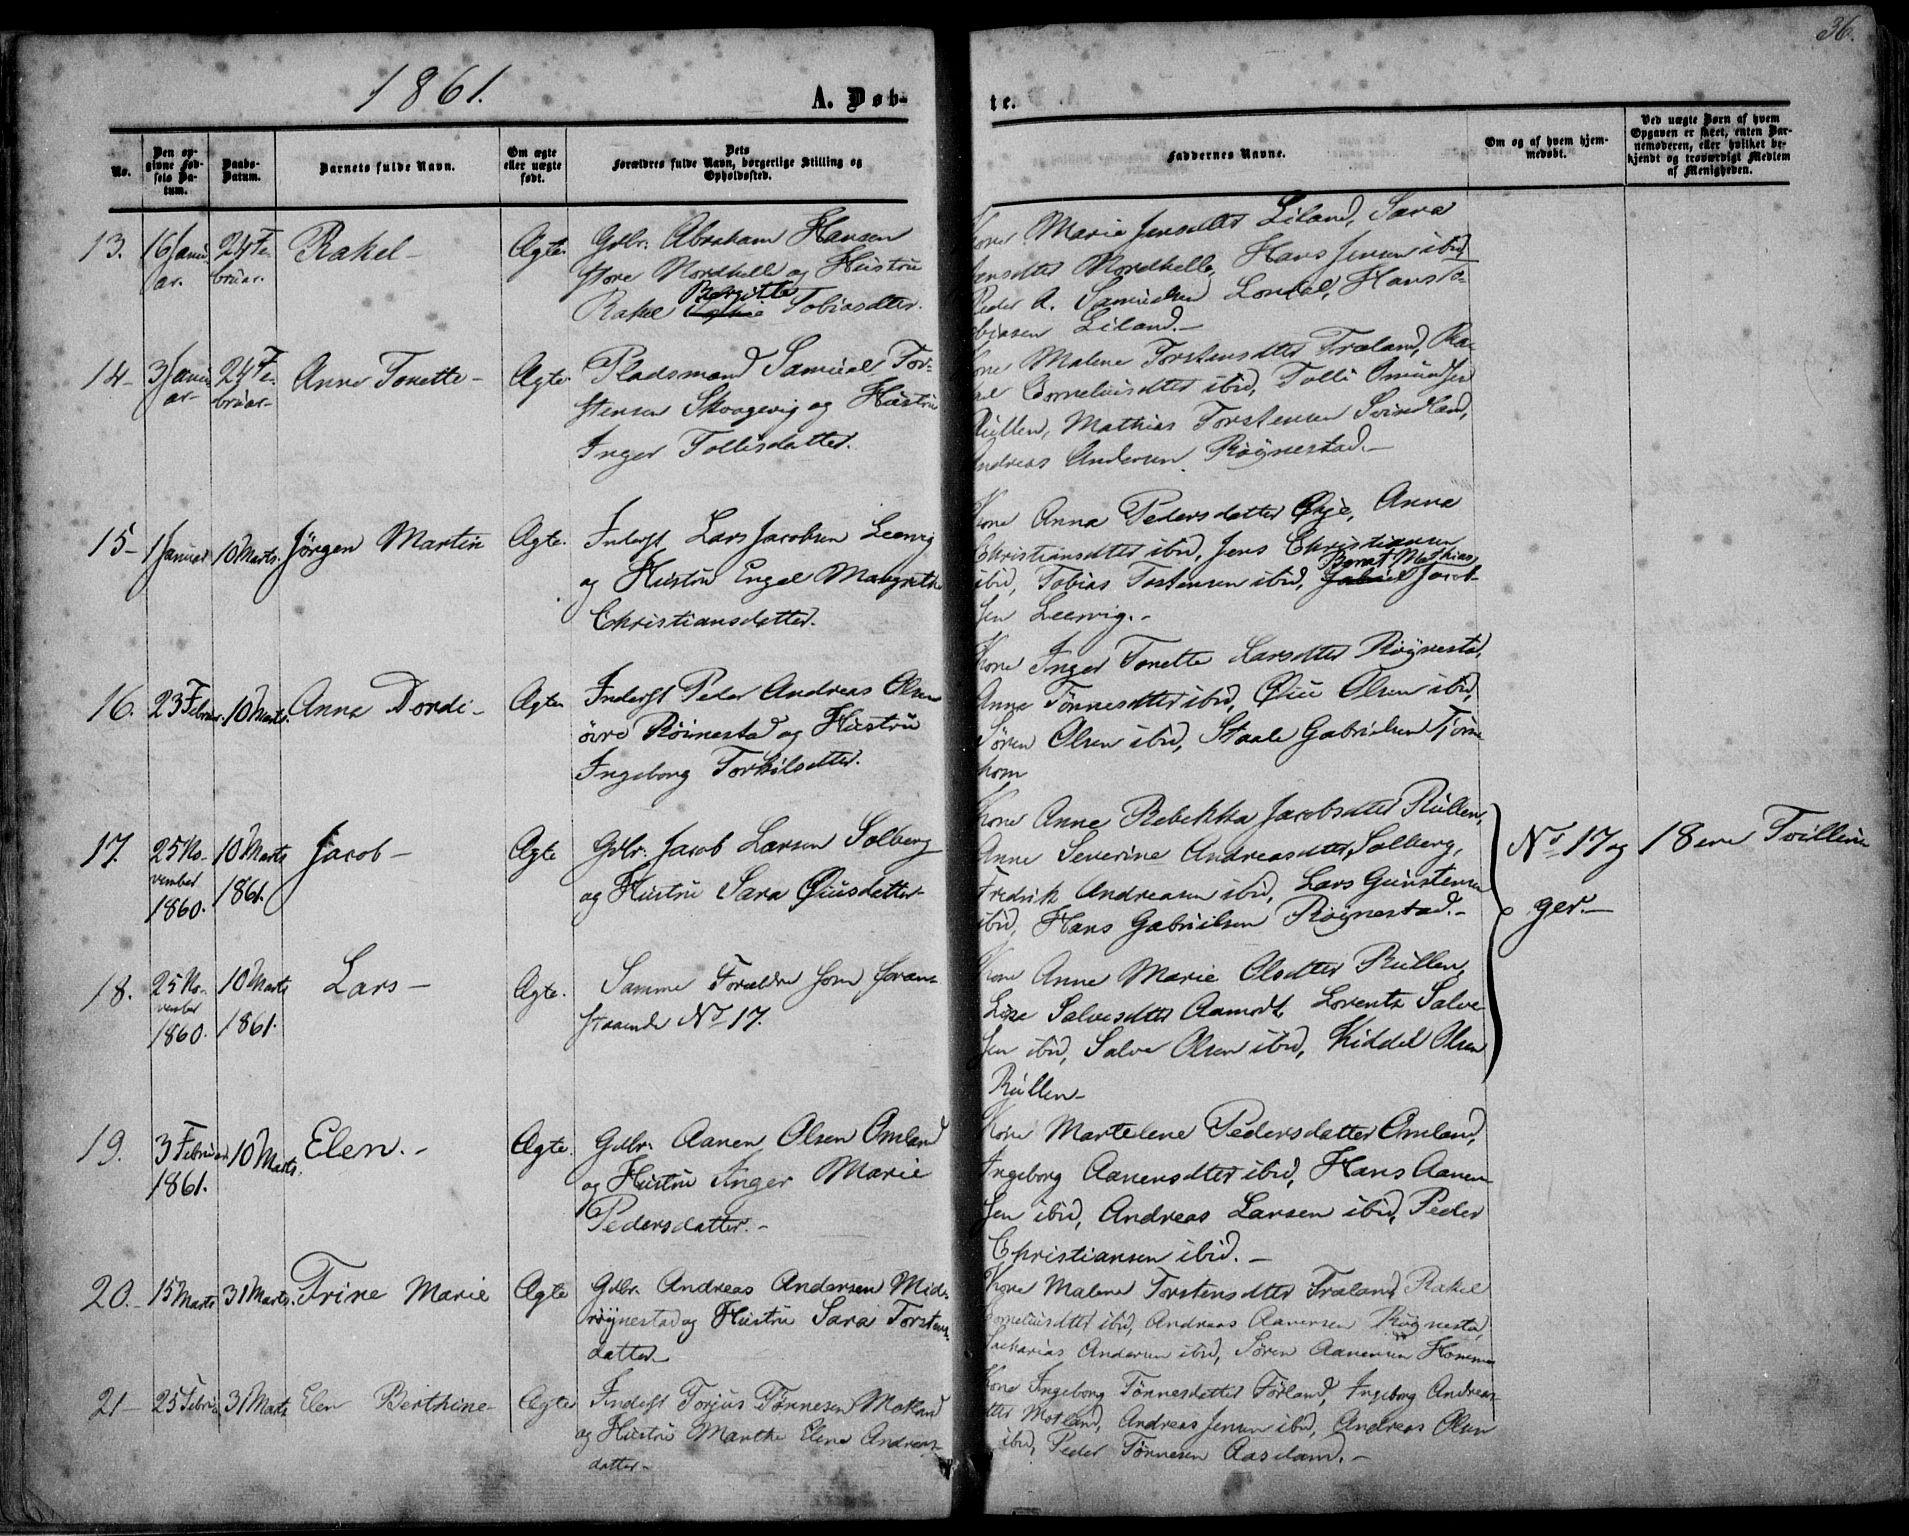 36.
1861.
A. Døb-
te.
No.
Den op-
givne Fød-
sels Da-
tum.
Daabs-
Datum.
Barnets fulde Navn.
Om ægte
eller uægte
født.
Dets
Forældres fulde Navn, borgerlige Stilling og
Opholdssted.
Faddernes Navne.
Om og af hvem hjem-
medøbt.
Ved uægte Børn af hvem
Opgaven er skeet, enten Bar-
nemoderen, eller hvilket be-
kjendt og troværdigt Medlem
af Menigheden.
13. 16 Janu
ar. 24 Fe-
bruar. Rakel - Ægte Gdbr. Abraham Hansen
store Nordhelle og Hustru
Rakel Bergitte Tobiasdtter.
Kone Marie Jensdtter Liland, Sara
Jensdtter Nordhelle, Hans Jensen ibid
Peder A. Samuelsen Londal, Hans To-
biasen Liland. -
14 - 3 Janu
ar - 24 Fe-
bruar - Anne Tonette - Ægte Pladsmand Samuel Tor-
stensen Skoogevig og Hustru
Inger Tollisdatter.
Kone Malene Torstensdtter Træland, Ra-
kel Corneliusdtter ibid, Tolli Omundsen
Rullen, Mathias Torstensen Svindland,
Andreas Andersen Røynestad. -
15 - 1 Januar 10 Marts. Jørgen Martin Ægte. Inderst Lars Jacobsen Leervig
og Hustru Engel Margrethe
Christiansdatter.
Kone Anna Pedersdatter Øye, Anna
Christiansdtter ibid, Jens Christiansen
ibid, Tobias Tostensen ibid, Gabriel Bernt Mathias Jacob-
sen Leervig. -
16. 23 Februar. 10 Marts. Anna Dordi - Ægte Inderst Peder Andreas Olsen
øvre Røinestad og Hustru
Ingeborg Torkilsdtter.
Kone Inger Tonette Larsdtter Røynestad,
Anne Tønnesdtter ibid, Øiu Olsen ibid,
Søren Olsen ibid, Staale Gabrielsen Tjom-
hom
17. 25 No-
vember
1860. 10 Marts
1861. Jacob - Ægte Gdbr. Jacob Larsen Solberg
og Hustru Sara Øiusdatter
Kone Anne Rebekka Jacobsdtter Rullen,
Anne Severine Andreasdtter Solberg,
Fredrik Andreasen ibid, Lars Gunstensen
ibid, Hans Gabrielsen Røynestad. -
No 17 og 18 ere Tvillin-
ger. -
18. 25 No-
vember
1860. 10 Marts
1861. Lars - Ægte. Samme Forældre som foran-
staaende No 17.
Kone Anne Marie Olsdtter Rullen,
Lise Salvesdtter Aamodt, Lorents Salve-
sen ibid, Salve Olsen ibid, Kiddel Olsen
Rullen -
19. 3 Februar
1861. 10 Marts. Elen. - Ægte. Gdbr. Aanen Olsen Omland
og Hustru Inger Marie
Pedersdatter. -
Kone Martelene Pedersdatter Omland,
Ingeborg Aanensdtter ibid, Hans Aanen-
sen ibid, Andreas Larsen ibid, Peder
Christiansen ibid. -
20. - 15 Marts 31 Marts. Trine Marie Ægte Gdbr. Andreas Andersen Mid-
røynestad og Hustru Sara Torstens-
datter -
Kone Malene Torstensdtter Træland, Rakel
Corneliusdtter ibid, Andreas Aanensen Røynestad,
Sacharias Andersen ibid, Søren Aanensen Homme
21 - 25 Februar 31 Marts Elen Berthine - Ægte Inderst Torjus Tønnesen Motland
og Hustru Marthe Elene Andreas-
datter -
Kone Ingeborg Tønnesdatter Førland, Ingeborg Andreas-
dtter Motland, Andreas Jensen ibid, Andreas Olsen
ibid, Peder Tønnesen Aaseland. -